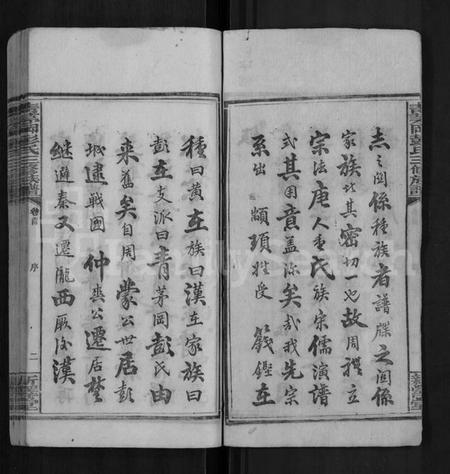 志之關係種族者譜牒之關係
家族比其密切一也故周禮立
宗法唐人重氏族宗儒演譜
式其用意蓋深矣哉我先宗
系出顓頊姓受籛鏗在
種曰黃在族曰漢在家族曰
彭在支派曰青茅岡彭氏由
來舊矣自周蒙公世居彭
城逮戰國仲爽公遷居楚
繼避秦又遷隴西厥後漢
卷首
序
二